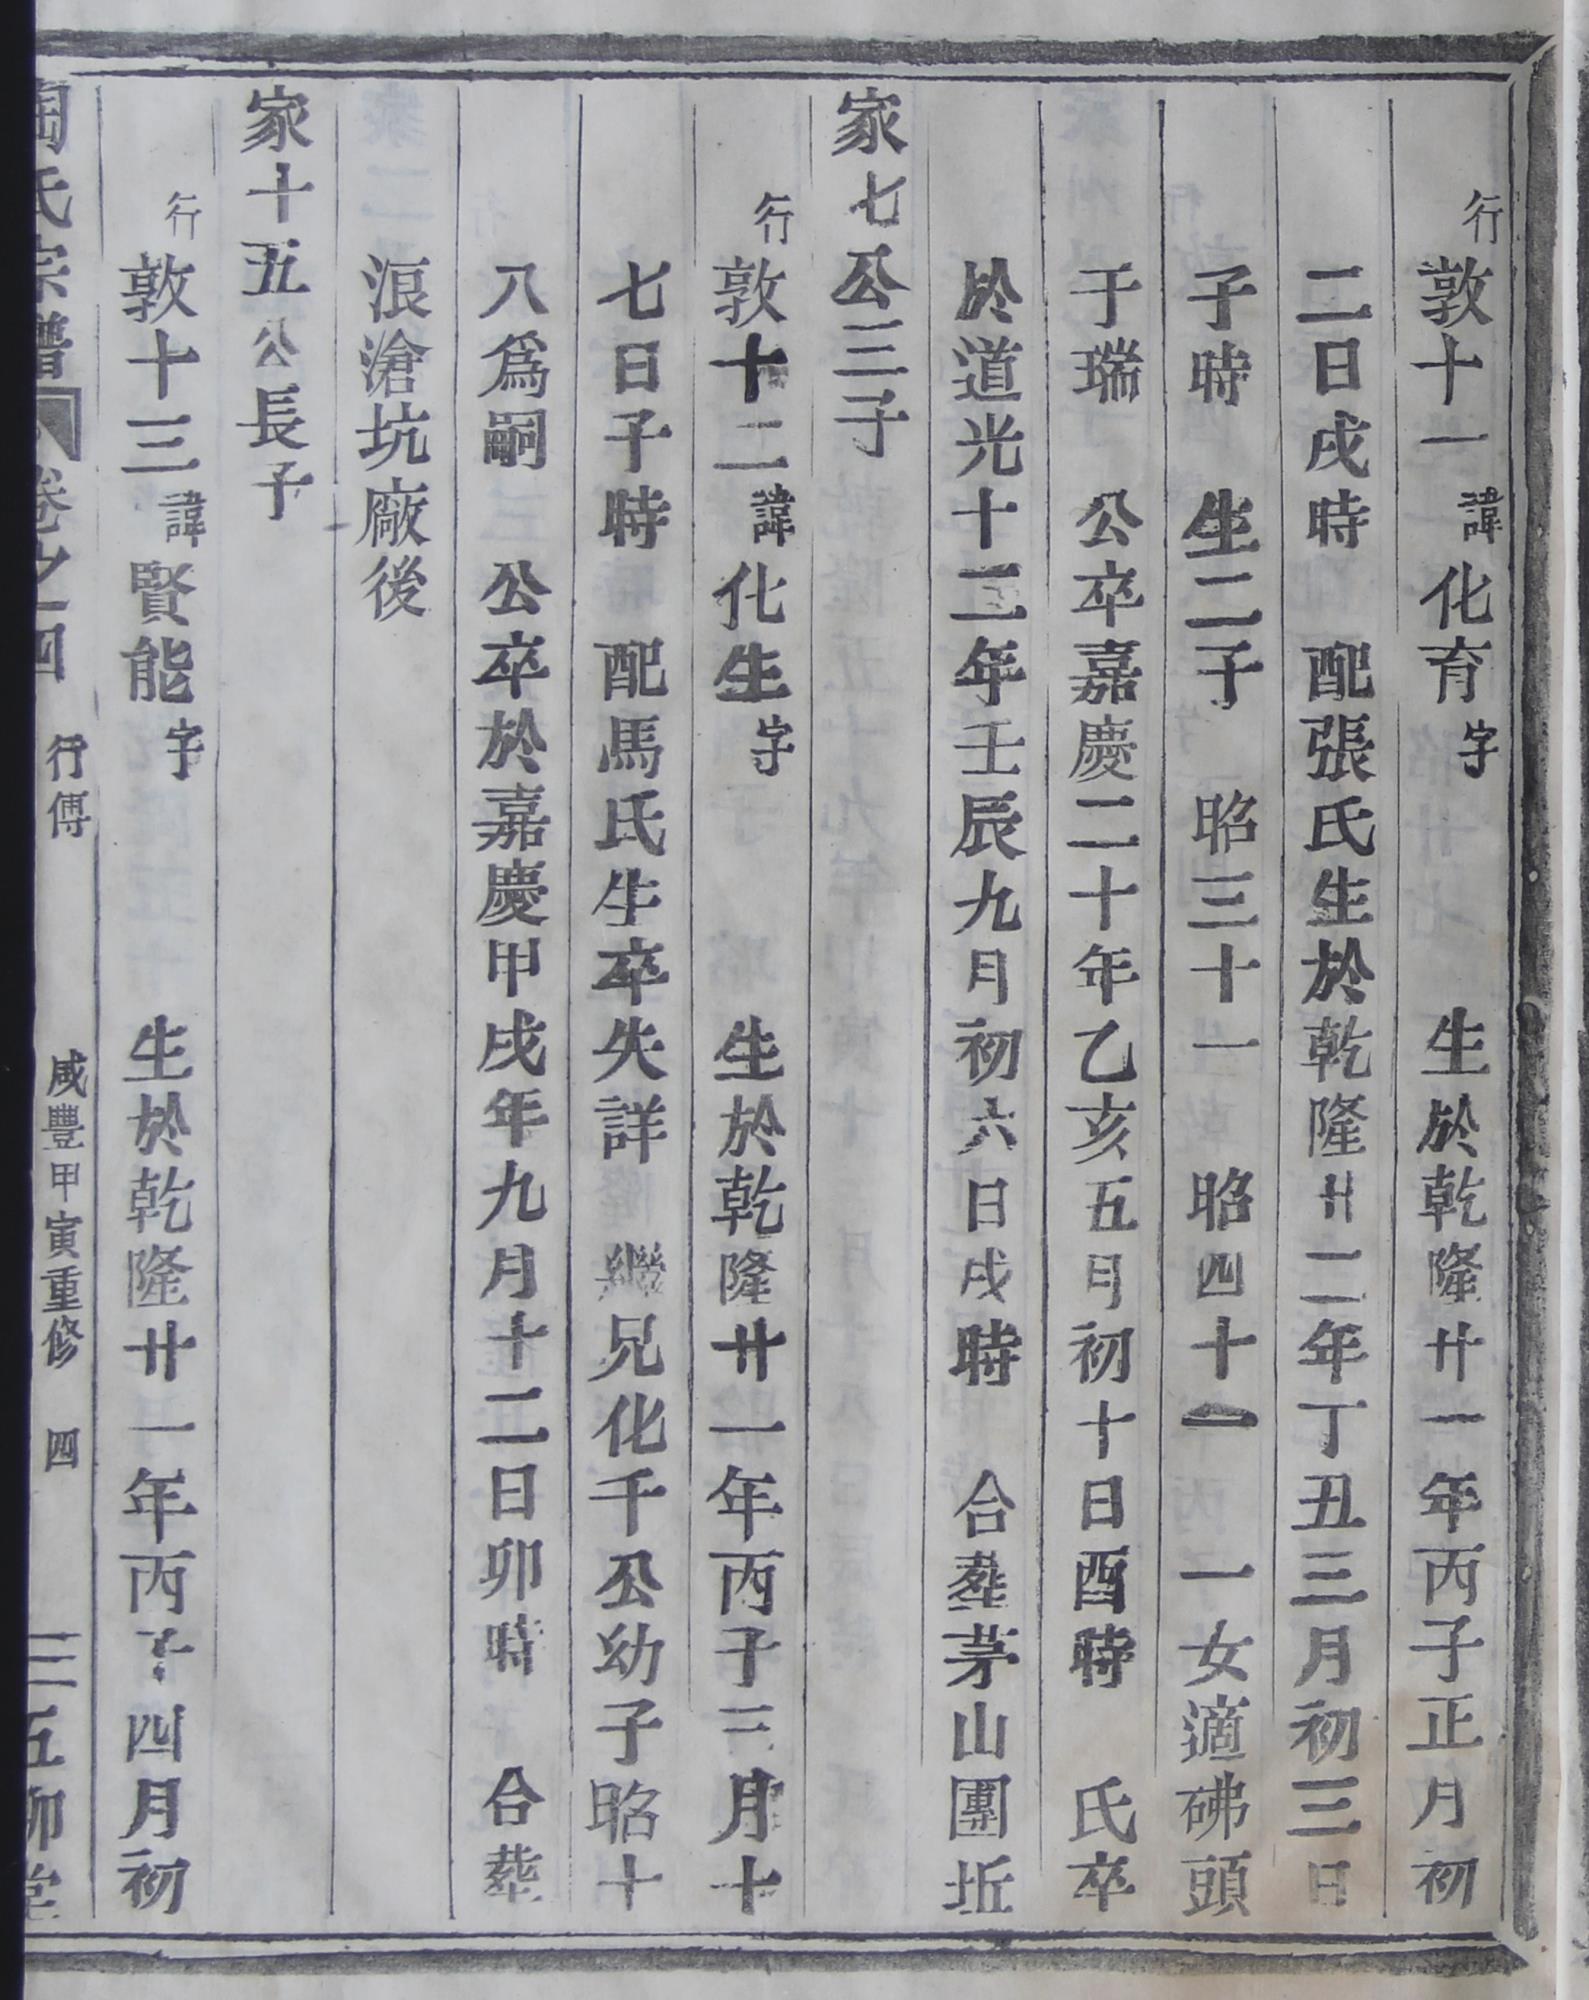 行敦十一諱化育字 生於乾隆廿一年丙子正月初
二日戌時 配張氏生於乾隆廿二年丁丑三月初三日
子時 生二子 昭三十一 昭四十一 一女適砩頭
于瑞 公卒嘉慶二十年乙亥五月初十日酉時 氏卒
於道光十二年壬辰九月初六日戌時 合塟茅山團坵
家七公三子
行敦十二諱化生字 生於乾隆廿一年丙子三月十
七日子時 配馬氏生卒失詳 繼兄化千公幼子昭十
八爲嗣 公卒於嘉慶甲戌年九月十二日卯時 合塟
浪滄坑廠後
家十五公長子
行敦十三諱賢能字 生於乾隆廿一年丙子四月初
陶氏宗譜 卷之四 行傅 咸豐甲寅重修 四 五柳堂